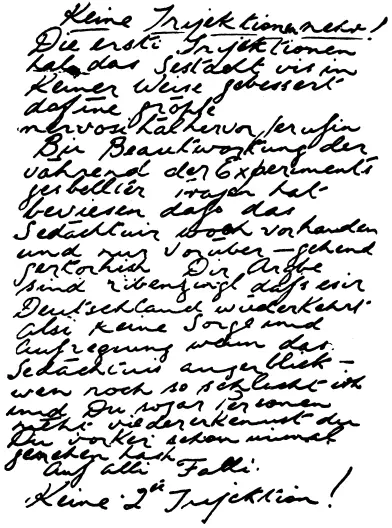 Keine Injektionen mehr!
Die erste Injektionen
hat das Gedächtnis in
keiner Weise gebessert
dafür eine größe
nervosität hervorgerufen
Die Beantwortung der
während der Experiments
gestellter Fragen hat
bewiesen dass das
Gedächtnis noch vorhanden
und nur vorüber-gehend
gestört ist Die Ärzte
sind überzeugt dass es in
Deutschland wiederkehrt
also keine Sorge und
Aufregung wenn das
Gedächtnis augenblick-
noch so schlecht ist
und Du sogar Personen
nicht wiedererkennst die
Du vorher schon einmal
gesehen hast
Auf alle Fälle
Keine 2te Injektion!